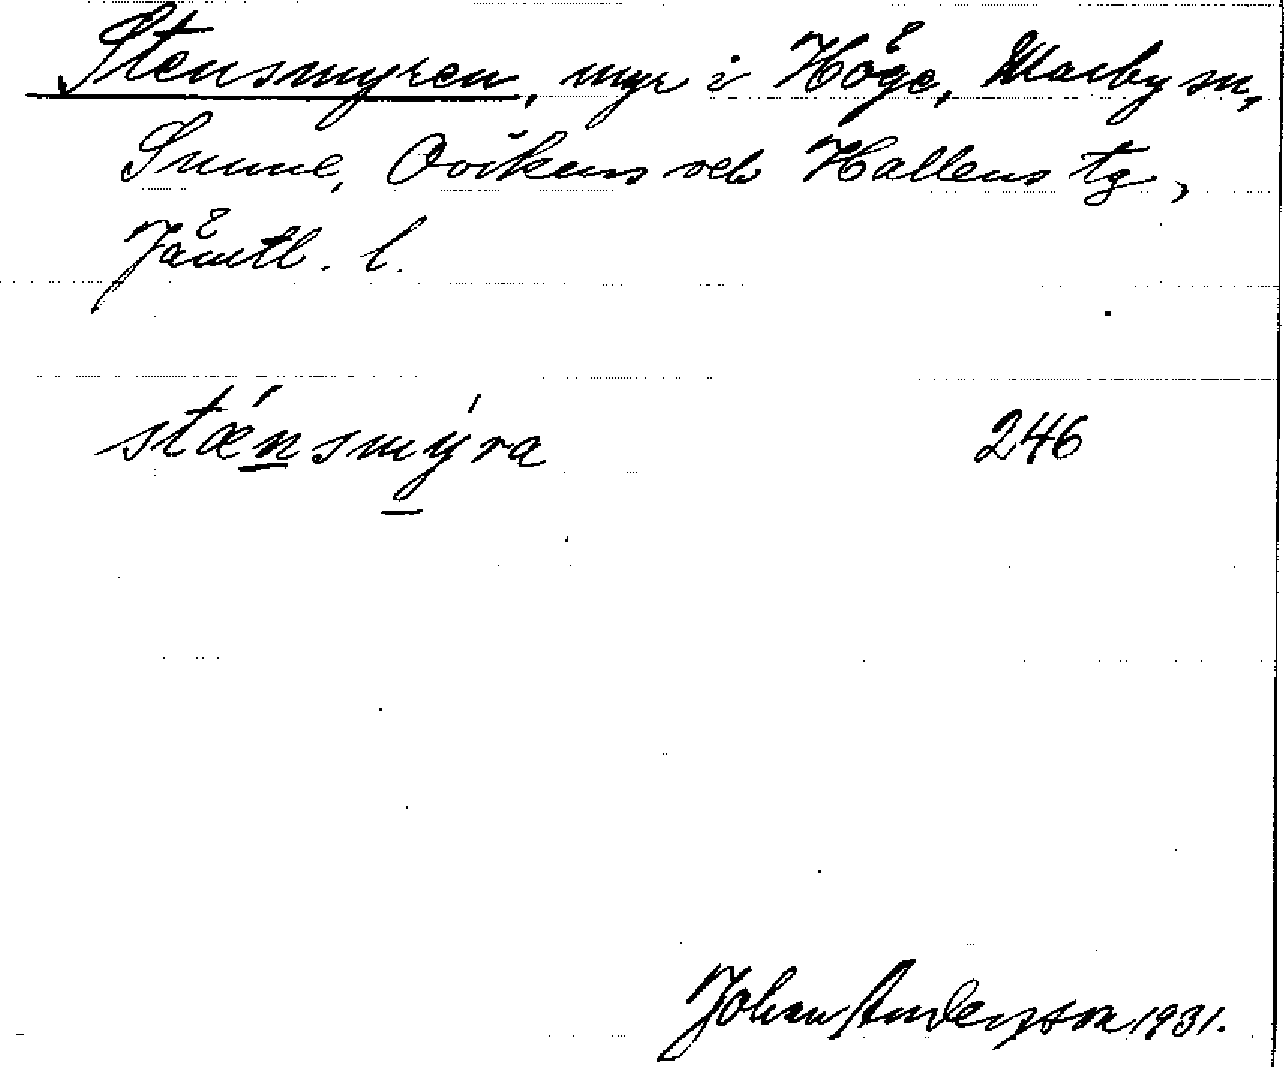 Stensmyren, myr i Höge, Marby sn,
Sunne, Ovikens och Hallens tg,
Jämtl. l.
stǽnsmýra 246
Johan Anderson 1931.